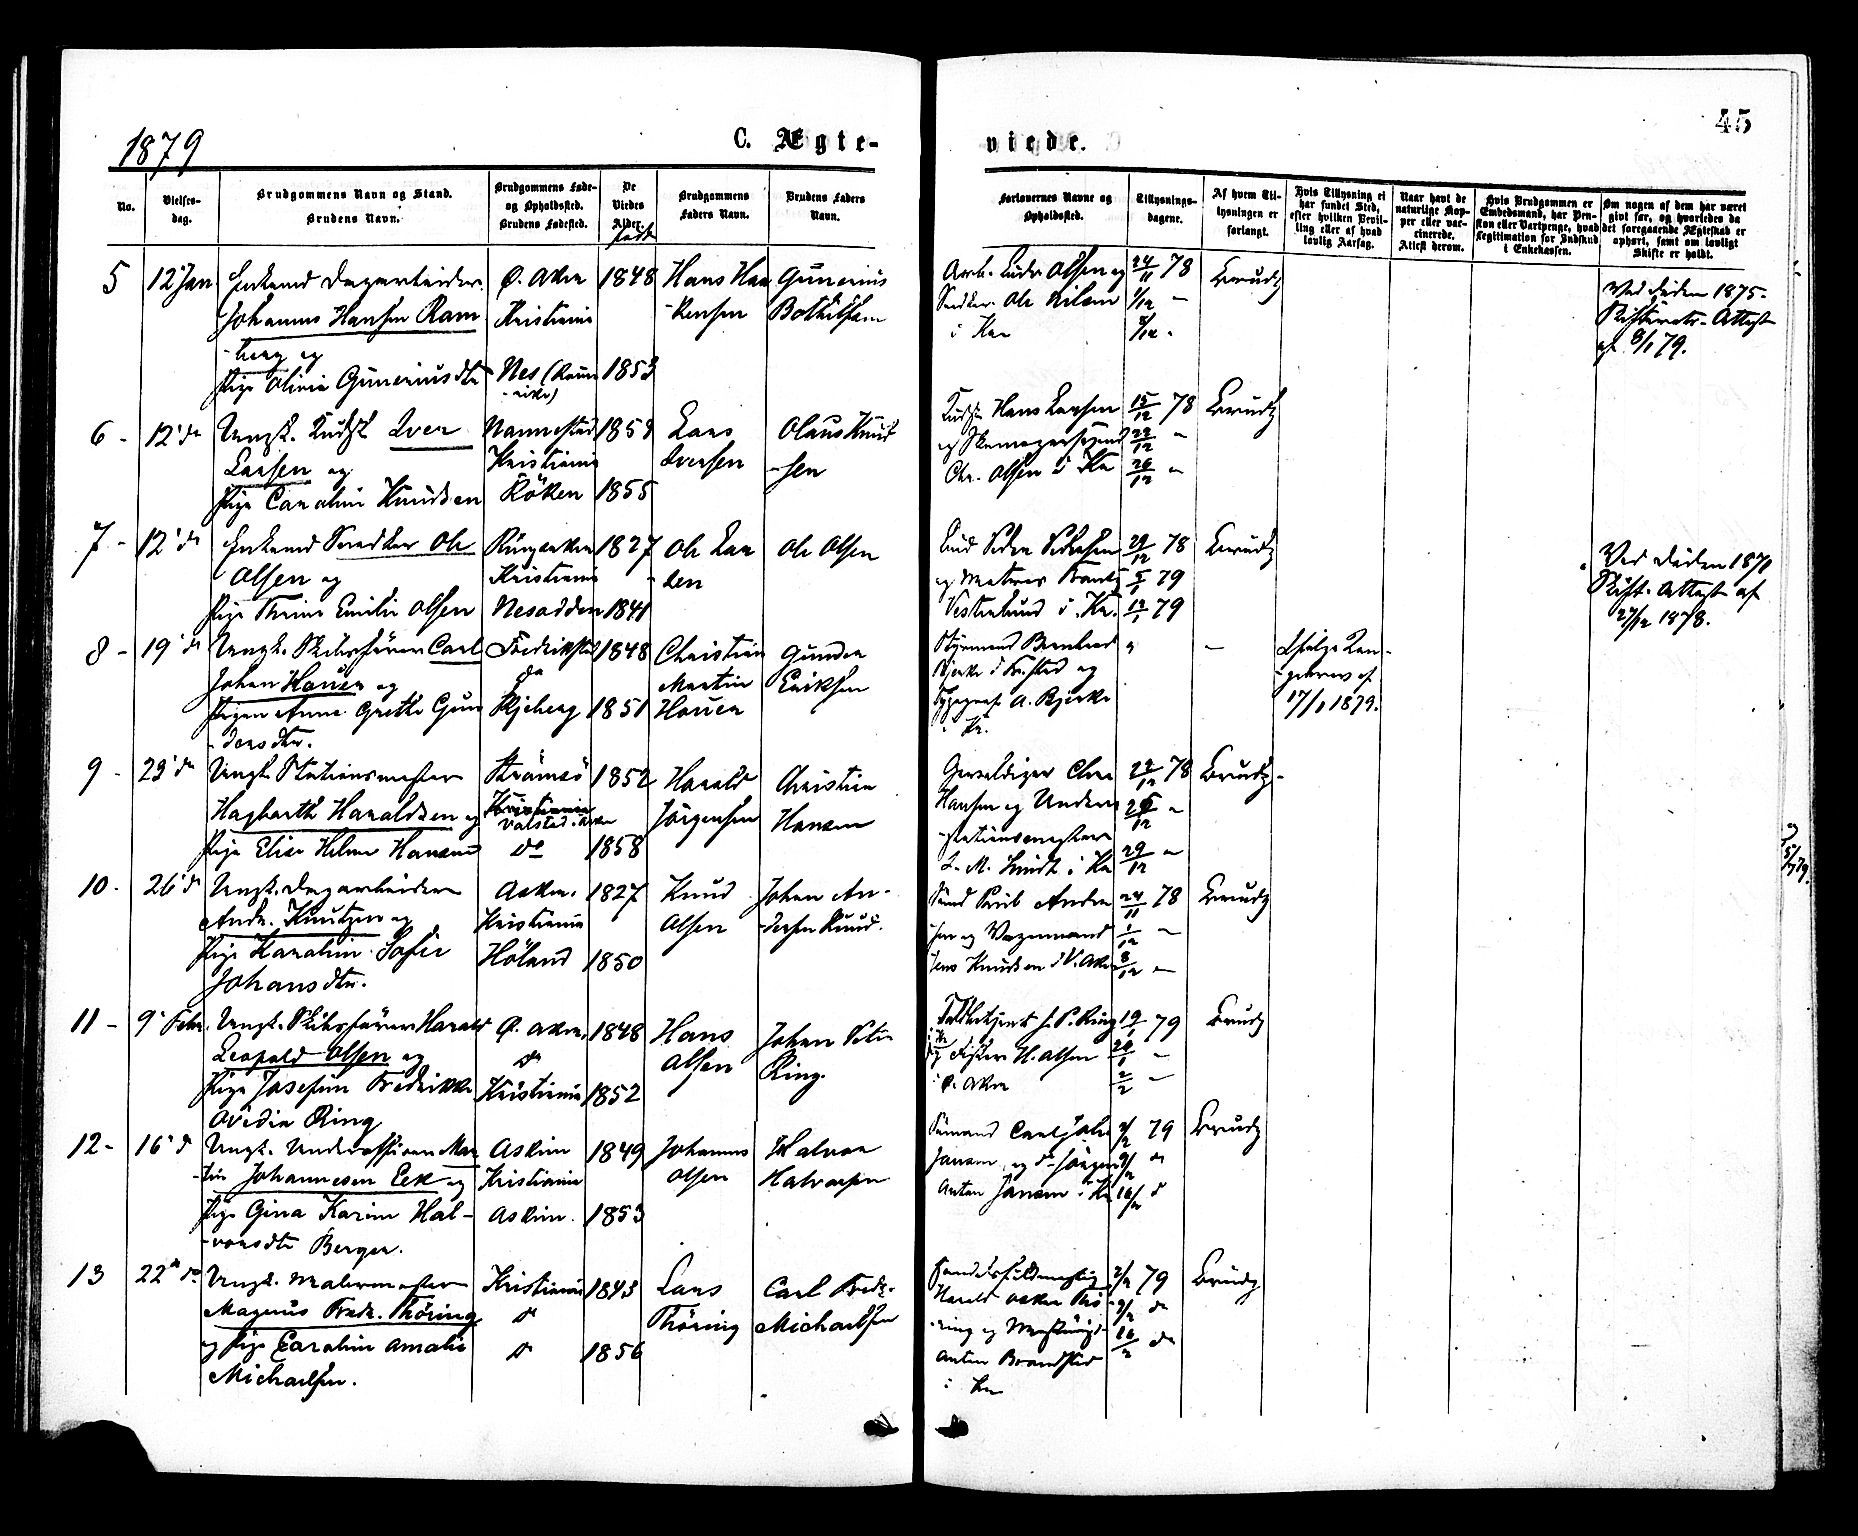 45
1879
C. Ægte-
viede.
No.
Vielses-
dag.
Brudgommens Navn og Stand.
Brudens Navn.
Brudgommens Føde-
og Opholdssted.
Brudens Fødested.
De
Viedes
Alder.
født
Brudgommens
Faders Navn.
Brudens Faders
Navn.
Forlovernes Navne og
Opholdssted.
Tillysnings-
dagene.
Af hvem Til-
lysningen er
forlangt.
Hvis Tillysning ei
har fundet Sted,
efter hvilken Bevil-
ling eller af hvad
lovlig Aarsag.
Naar havt de
naturlige Kop-
per eller vac-
cinerede.
Attest derom.
Hvis Brudgommen er
Embedsmand, har Pen-
sion eller Vartpenge, hvad
Legitimation for Indskud
i Enkekassen.
Om nogen af dem har været
givt før, og hvorledes da
det foregaaende Ægteskab er
ophørt, samt om lovligt
Skifte er holdt.
5 12' Jan Enkemd Dagarbeider
Johannes Hansen Ram
-berg og
Pige Olivia Gunerius dtr
Ø. Aker
Kristiania
Nes (Rom
-erike)
1848
1853
Hans Han
-kensen
Gunerius
Arb. Ludv Olsen og
Snedker Ole Nilsen
i Kra
24/11 78
1/12 "
8/12 "
Brudg
Ved Døden 1875.
Skifterets-Attest
af 8/1 79.
6 - 12' do Ungk. Kudsk Iver
Larsen og
Pige Caroline Knudsen
Nannestad
Kristiania
Röken
1858
1855
Lars
Iversen
Olaus Knud
-sen
Kudsk Hans Larsen
og Skomagersvend
Chr. Olsen i Kra
15/12 78
22/12 "
26/12 "
Brudg
7 - 12' do Enkemd Snedker Ole
Olsen og
Pige Thrine Emilie Olsen
Ringsaker
Kristiania
Nesodden
1827
1841
Ole Lar
sen
Ole Olsen
Peder Pedersen
og
Vesterlund i Kra.
29/12 78
5/1 79
12/1 79
Brudg
Ved Døden 1870
Skift. Attest af
27/12 1878.
8 - 19' do Ungk. Skibsfører Carl
Johan Hauer og
Pigen Anne Grethe Gun
-dersdtr.
Fredrikstad
do
Skjeberg
1848
1851
Christian
Martin
Hauer
Gunder
Eriksen
Styrmand Bernhard
Bjerke i Fr.stad og
Typograf A. Bjerke
i Kr.
"
-
Ifølge Kon-
-gebrev af
17/1 1879.
9 - 23' do Ungk. Stationsmester
Hagbarth Haraldsen og
Pige Elise Helene Hansen
Strømsö
Kristiania
do
1852
1858
Harald
Jörgensen
Christian
Hansen
Gevaldiger Chr
Hansen og Under
-stationsmester
L. M. Smidt i Kra
22/12 78
26/12 "
29/12 "
Brudg.
10 - 26' do Ungk. Dagarbeider
Andr. Knutzen og
Pige Karoline Sofie
Johansdtr.
Asker.
Kristiania
Höland
1827
1850
Knud
Olsen
Johan An-
-dersen Ruud.
Andre
-sen og Vognmand
Jens Knudsen i V. Aker
24/11 78
1/12 "
8/12 "
Brudg
11 - 9' Febr. Ungk. Skibsfører Harald
Leopold Olsen og
Pige Josefine Fredrikke
Ovidia Ring
Ø. Aker.
do
Kristiania
1848
1852
Hans
Olsen
Johan Peter
Ring.
J. P. Ring
og Fisker H. Olsen
i Ø. Aker
19/1 79
26/1 "
2/2 "
Brudg
12 - 16' do Ungk. Underofficer Mar
-tin Johannesen Eek og
Pige Gina Karine Hal-
-vorsdtr Berger.
Askim
Kristiania
Askim.
1849
1853
Johannes
Olsen
Halvor
Halvorsen
Sömand Carl Joh.
Jansen og do Jörgen
Anton Jansen i Kra
2/2 79
9/2 do
16/2 do
Brudg
13 22de do Ungk. Malermester
Magnus Fredr. Thöring
og Pige Caroline Amalie
Michaelsen.
Kristiania
do
do
1843
1856
Lars
Thöring
Carl Fredr.
Michaelsen
Handelsfuldmægtig
Harald Oskar Thö
-ring og
Anton Brandstad
i Kra
2/2 79
9/2 do
16/2 do
Brudg